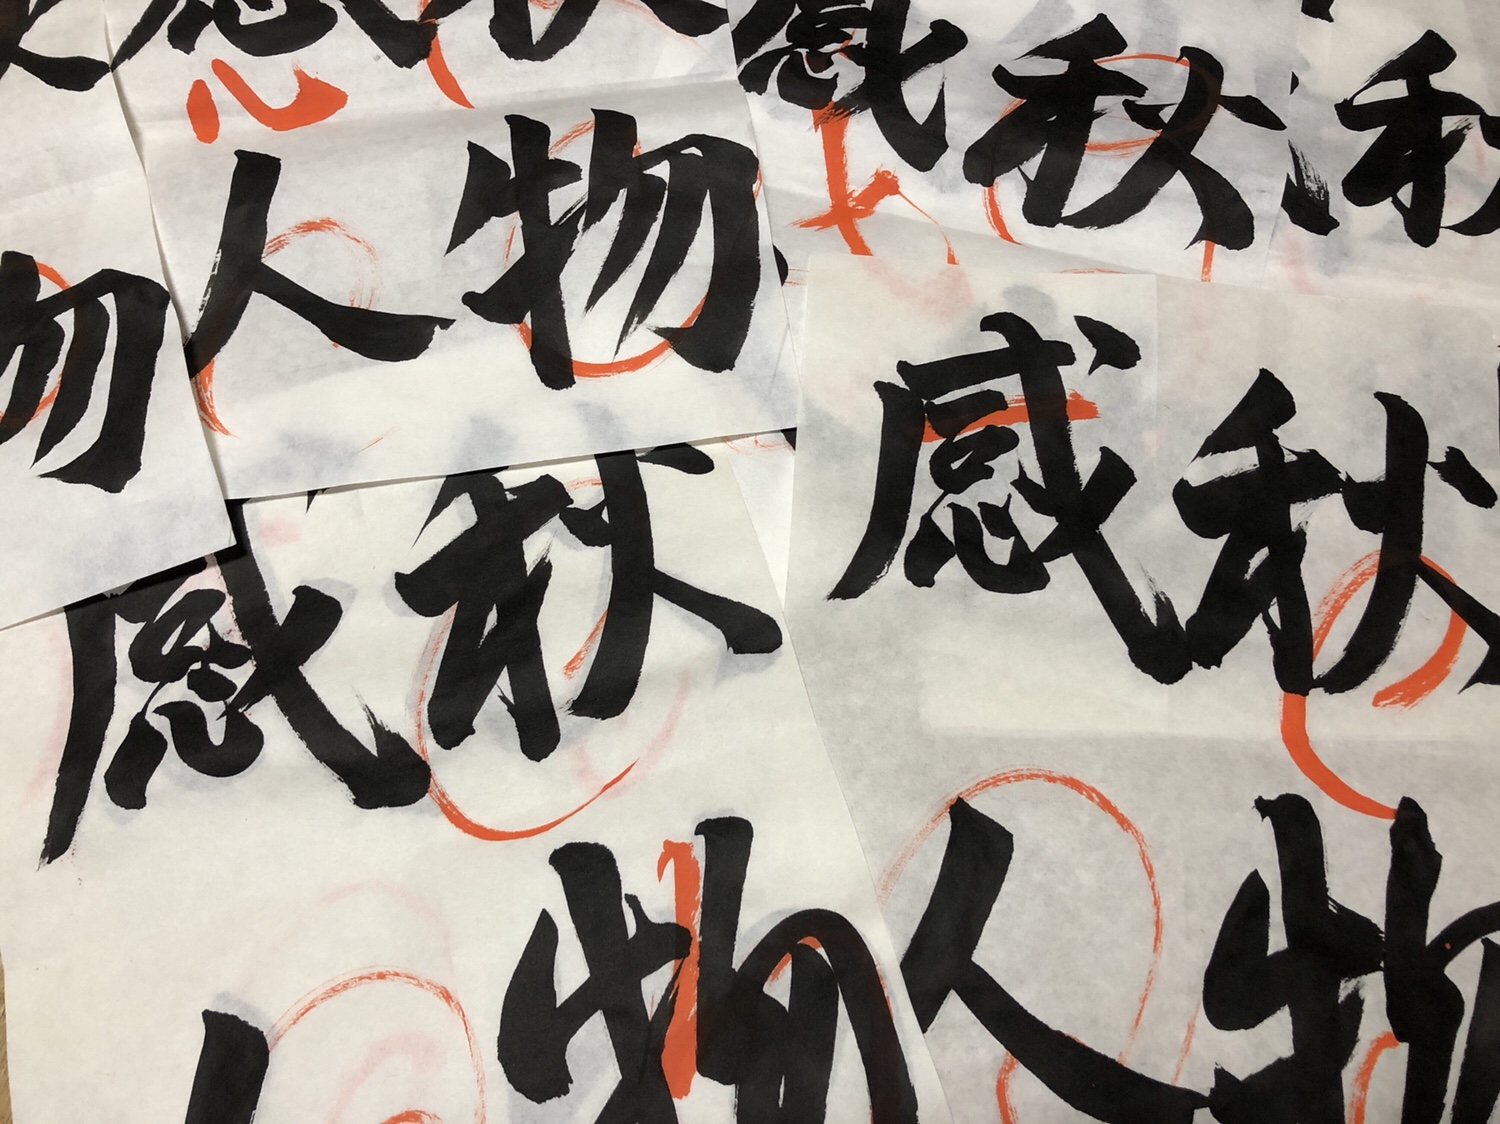 感秋
心
人物
感秋
秋
物
感秋
人物
感秋
人物